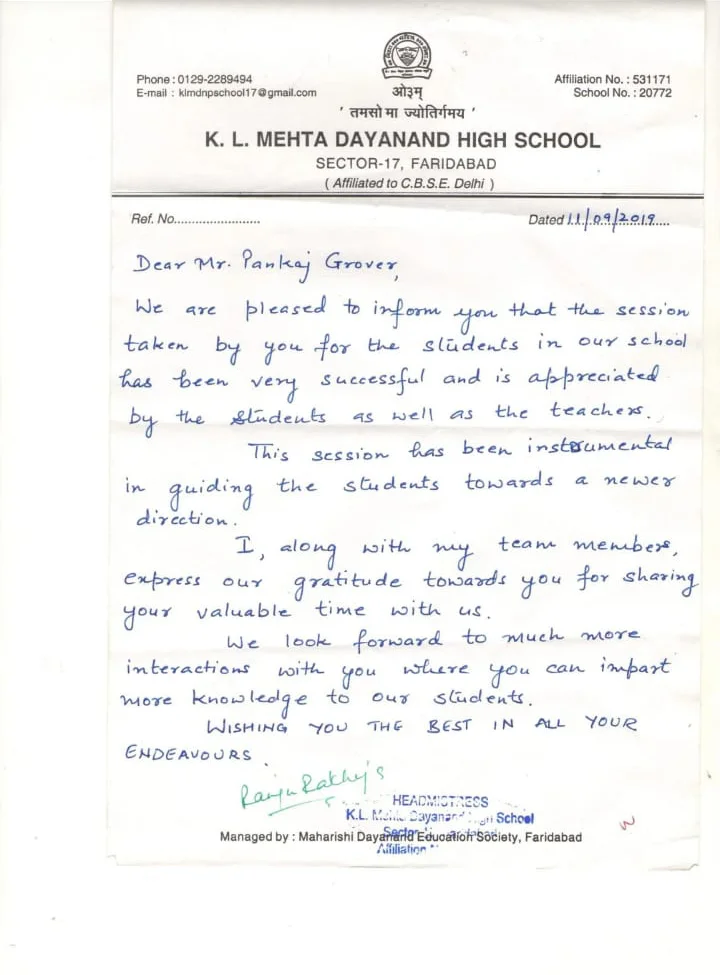 Phone : 0129-2289494
E-mail : klmdnpschool17@gmail.com
Affiliation No. : 531171
School No. : 20772
ओ३म्
' तमसो मा ज्योतिर्गमय '
K. L. MEHTA DAYANAND HIGH SCHOOL
SECTOR-17, FARIDABAD
( Affiliated to C.B.S.E. Delhi )
Ref. No........................
Dated 11/09/2019....
Dear Mr. Pankaj Grover,
We are pleased to inform you that the session
taken by you for the students in our school
has been very successful and is appreciated
by the students as well as the teachers.
This session has been instrumental
in guiding the students towards a newer
direction.
I, along with my team members,
express our gratitude towards you for sharing
your valuable time with us.
We look forward to much more
interactions with you where you can impart
more knowledge to our students.
WISHING YOU THE BEST IN ALL YOUR
ENDEAVOURS.
HEADMISTRESS
K.L. Mehta Dayanand High School
Managed by : Maharishi Dayanand Education Society, Faridabad
Affiliation